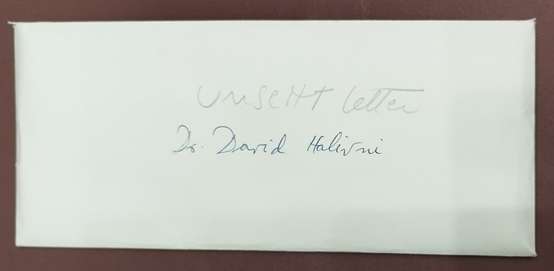 unsent letter
Dr. David Halivni